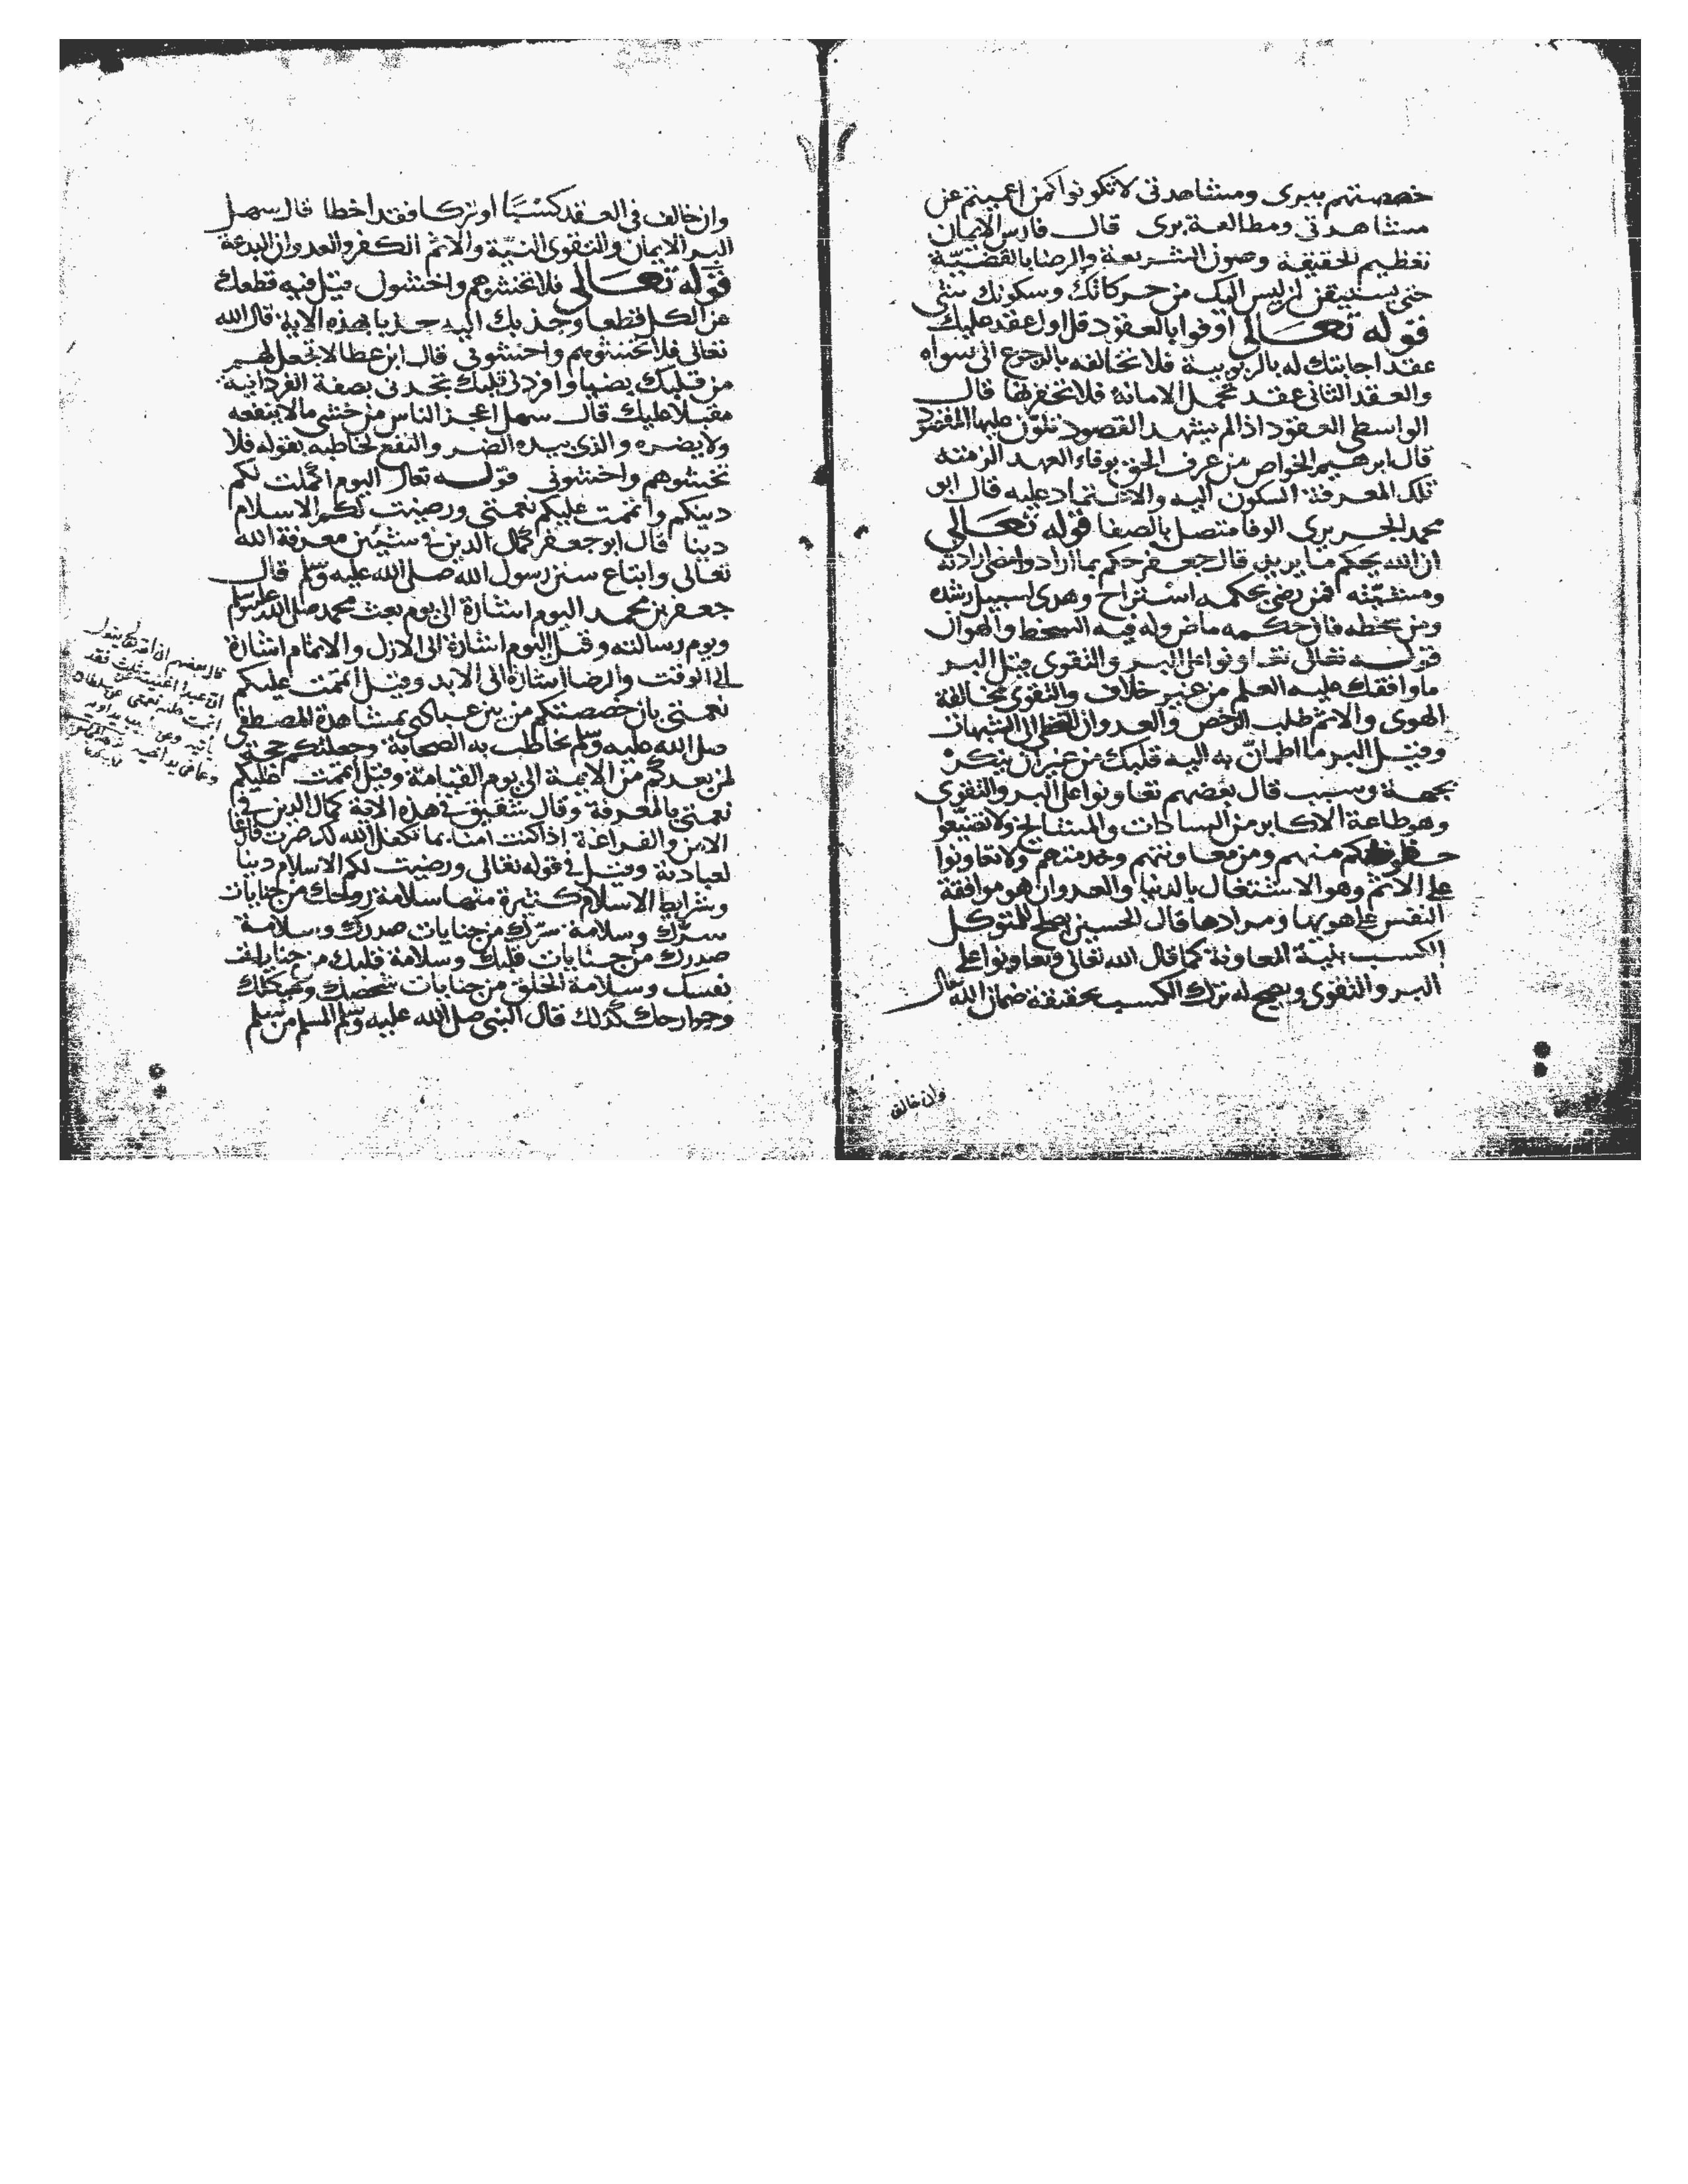 خصصتهم ببرى ومشاهدتى لا تكونوا كمن اعميتهم عن
مشاهدتى ومطالعة برى قال فارس الايمان
تعظيم الحقيقة وصون الشريعة والرضا بالقضية
حتى يستيقن ان ليس اليك من حركاتك وسكونك شى
قوله تعالى اوفوا بالعقود قال اول عقد عليك
عقد اجابتك له بالربوبية فلا تخالفه بالرجوع الى سواه
والعقد الثانى عقد تحمل الامانة فلا تحقرنها قال
الواسطى العقود اذا لم يشهد القصود تلون عليها المقصود
قال ابرهيم الخواص من عرف الحق بوفاء العهد الزمته
تلك المعرفة السكون اليه والاعتماد عليه قال ابو
محمد الجريرى الوفا متصل بالصفا قوله تعالى
ان الله يحكم ما يريد قال جعفر حكم بما اراد وامضى ارادته
ومشيته فمن رضى بحكمه استراح وهدى لسبيل رشده
ومن سخطه فان حكمه ماض وله فيه السخط والهوان
قوله تعالى تعاونوا على البر والتقوى قيل البر
ما وافقك عليه العلم من غير خلاف والتقوى مخالفة
الهوى والاثم طلب الرخص والعدوان التخطى الى الشبهات
وقيل البر ما اطمان به اليه قلبك من غير ان ينكره
بجهة وسبب قال بعضهم تعاونوا على البر والتقوى
وهو طاعة الاكابر من السادات والمشايخ ولا تضيعوا
حظوظكم منهم ومن معاونتهم وخدمتهم ولا تعاونوا
على الاثم وهو الاشتغال بالدنيا والعدوان هو موافقة
النفس على هويها ومرادها قال الحسين يصلح للمتوكل
الكسب بنية المعاونة كما قال الله تعالى وتعاونوا على
البر والتقوى ويصح له ترك الكسب بحقيقة ضمان الله تعالى
وان خالف
وان خالف فى العقد كسبا او تركا فقد اخطا قال سهل
البر الايمان والتقوى النية والاثم الكفر والعدوان البدعة
قوله تعالى فلا تخشوهم واخشون قيل فيه قطعك
عن الكل قطعا وجذبك اليه جذبا بهذه الاية قال الله
تعالى فلا تخشوهم واخشونى قال ابن عطا لا تجعل لهم
من قلبك نصيبا وافرد لى قلبك تجدنى بصفة الفردانية
مقبلا عليك قال سهل اعجز الناس من خشى ما لا ينفعه
ولا يضره والذى بيده الضر والنفع يخاطبه بقوله فلا
تخشوهم واخشونى قوله تعالى اليوم اكملت لكم
دينكم واتممت عليكم نعمتى ورضيت لكم الاسلام
دينا قال ابو جعفر كمال الدين فى شيئين معرفة الله
تعالى واتباع سنن رسول الله صلى الله عليه وسلم قال
جعفر بن محمد اليوم اشارة الى يوم بعث محمد صلى الله عليه وسلم
ويوم رسالته وقيل اليوم اشارة الى الازل والاتمام اشارة
الى الوقت والرضا اشارة الى الابد وقيل اتممت عليكم
نعمتى بان خصصتكم من بين عبادى بمشاهدة المصطفى
صلى الله عليه وسلم يخاطب به الصحابة وجعلتكم حجة
لمن بعدكم من الايمة الى يوم القيامة وقيل اتممت عليكم
نعمتى بالمعرفة وقال شقيق فى هذه الاية كمال الدين فى
الامن والفراغة اذا كنت امنا بما تكفل الله لك صرت فارغا
لعبادته وقيل فى قوله تعالى ورضيت لكم الاسلام دينا
وشرايط الاسلام كثيرة منها سلامة روحك من جنايات
سرك وسلامة سرك من جنايات صدرك وسلامة
صدرك من جنايات قلبك وسلامة قلبك من جنايات
نفسك وسلامة الخلق من جنايات شخصك وهيكلك
وجوارحك كذلك قال النبى صلى الله عليه وسلم المسلم من سلم
قال بعضهم ان الله تعالى يقول